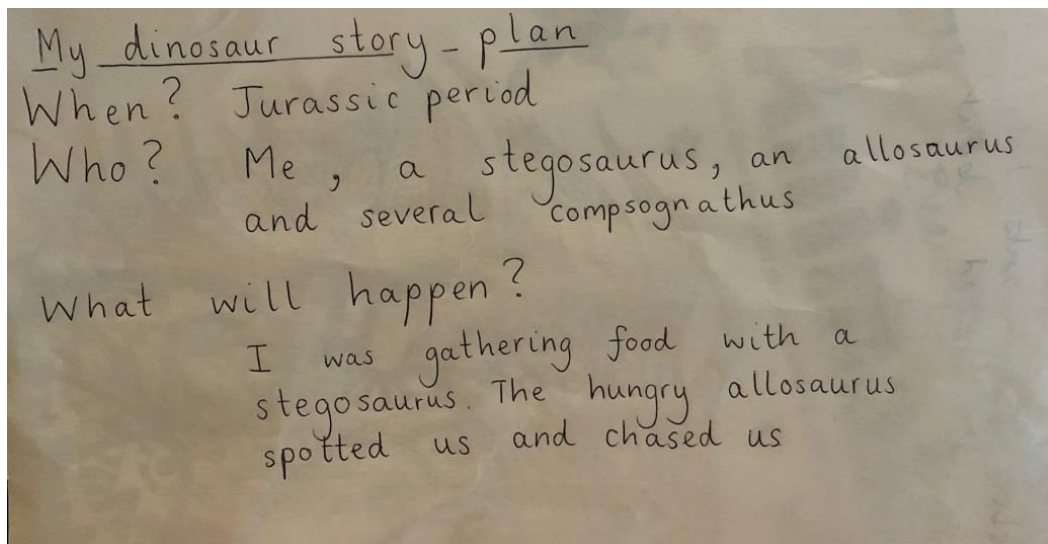 My dinosaur story - plan
When? Jurassic period
Who? Me, a stegosaurus, an allosaurus
and several compsognathus
What will happen?
I was gathering food with a
stegosaurus. The hungry allosaurus
spotted us and chased us